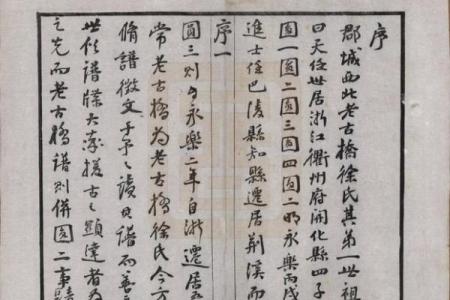 序
郡城西北老古橋徐氏其第一世祖
曰天任世居浙江衢州府開化縣四子
圓一圓二圓三圓四圓二明永樂丙戌
進士任巴陵縣知縣遷居荆溪而
序一
圓三則以永樂二年自浙遷居
常老古橋為老古橋徐氏今方
脩譜徵文于予予讀其譜而善
世俗譜牒大率援古之顯達者為
之先而老古橋譜則併圓二事